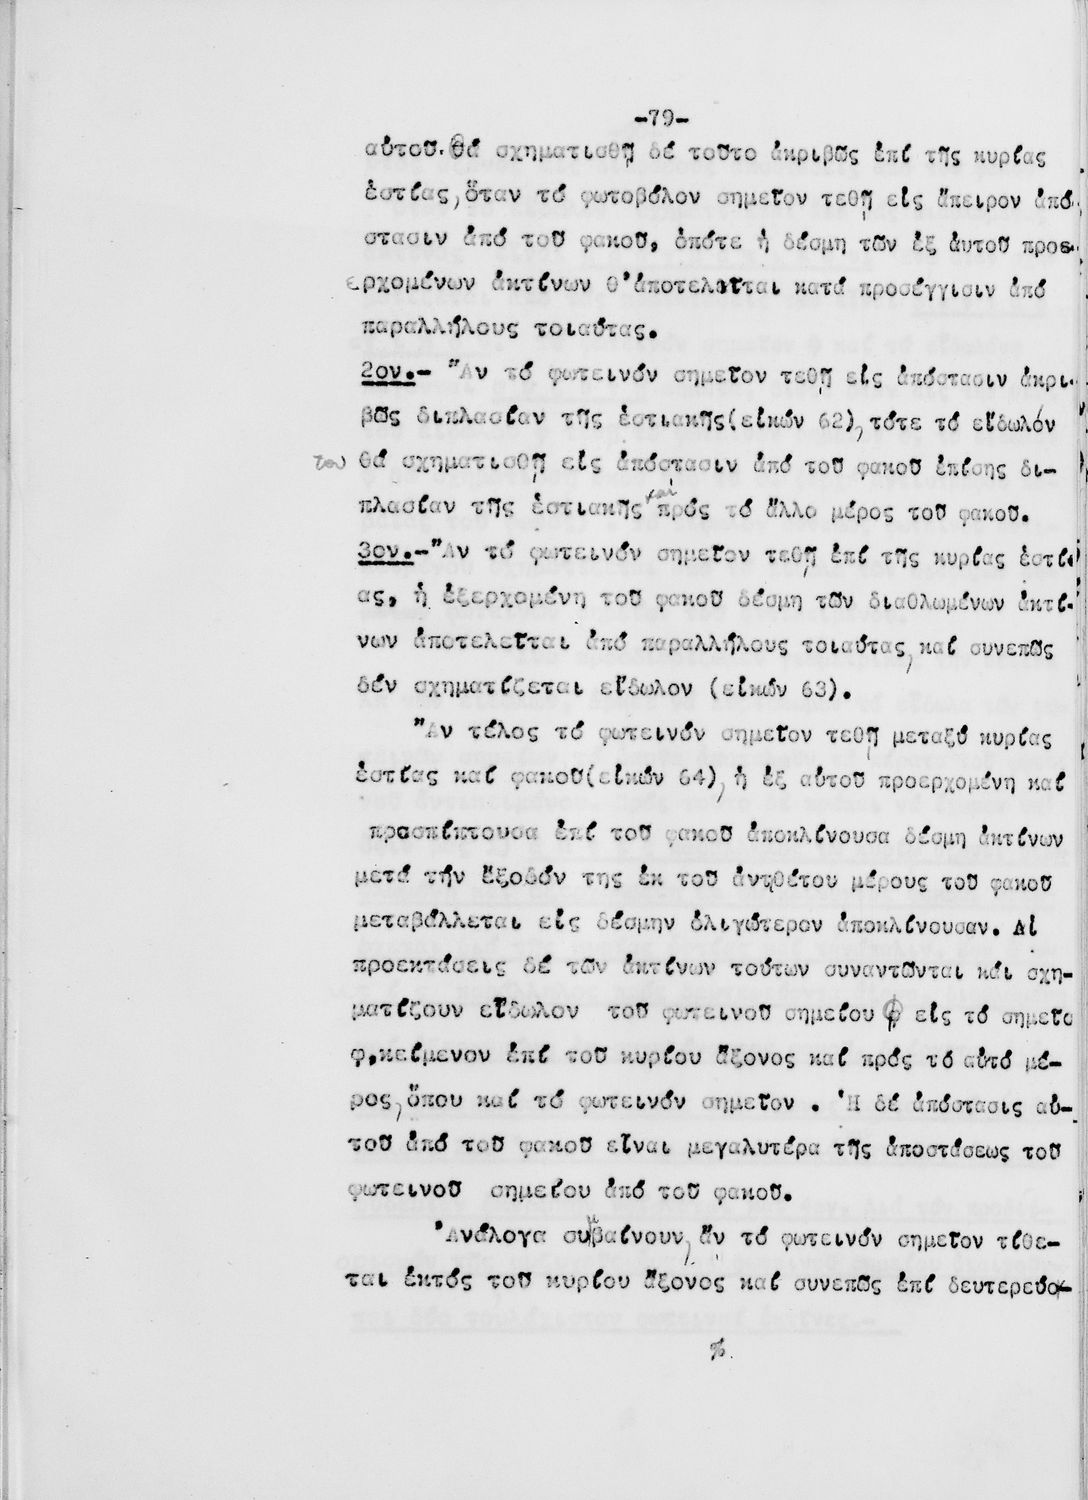 -79-
αὐτοῦ. Θά σχηματισθῇ δέ τοῦτο ἀκριβῶς ἐπί τῆς κυρίας
ἑστίας, ὅταν τό φωτοβόλον σημεῖον τεθῇ εἰς ἄπειρον ἀπό-
στασιν ἀπό τοῦ φακοῦ, ὁπότε ἡ δέσμη τῶν ἐξ ἀυτοῦ προε-
ερχομένων ἀκτίνων θ'ἀποτελεῖται κατά προσέγγισιν ἀπό
παραλλήλους τοιαύτας.
2ον.- Ἄν τό φωτεινόν σημεῖον τεθῇ εἰς ἀπόστασιν ἀκρι-
βῶς διπλασίαν τῆς ἑστιακῆς(εἰκών 62), τότε τό εἴδωλόν
του θά σχηματισθῇ εἰς ἀπόστασιν ἀπό τοῦ φακοῦ ἐπίσης δι-
πλασίαν τῆς ἑστιακῆς καί πρός τό ἄλλο μέρος τοῦ φακοῦ.
3ον.-Ἄν τό φωτεινόν σημεῖον τεθῇ ἐπί τῆς κυρίας ἑστί-
ας, ἡ ἐξερχομένη τοῦ φακοῦ δέσμη τῶν διαθλωμένων ἀκτί-
νων ἀποτελεῖται ἀπό παραλλήλους τοιαύτας, καί συνεπῶς
δέν σχηματίζεται εἴδωλον (εἰκών 63).
Ἄν τέλος τό φωτεινόν σημεῖον τεθῇ μεταξύ κυρίας
ἑστίας καί φακοῦ(εἰκών 64), ἡ ἐξ αὐτοῦ προερχομένη καί
προσπίπτουσα ἐπί τοῦ φακοῦ ἀποκλίνουσα δέσμη ἀκτίνων
μετά τήν ἔξοδόν της ἐκ τοῦ ἀντιθέτου μέρους τοῦ φακοῦ
μεταβάλλεται εἰς δέσμην ὀλιγώτερον ἀποκλίνουσαν. Αἱ
προεκτάσεις δέ τῶν ἀκτίνων τούτων συναντῶνται κάι σχη-
ματίζουν εἴδωλον τοῦ φωτεινοῦ σημείου φ εἰς τό σημεῖο
φ,κείμενον ἐπί τοῦ κυρίου ἄξονος καί πρός τό αὐτό μέ-
ρος, ὅπου καί τό φωτεινόν σημεῖον . Ἡ δέ ἀπόστασις αὐ-
τοῦ ἀπό τοῦ φακοῦ εἶναι μεγαλυτέρα τῆς ἀποστάσεως τοῦ
φωτεινοῦ σημείου ἀπό τοῦ φακοῦ.
Ἀνάλογα συμβαίνουν, ἄν τό φωτεινόν σημεῖον τίθε-
ται ἐκτός τοῦ κυρίου ἄξονος καί συνεπῶς ἐπί δευτερεύο-